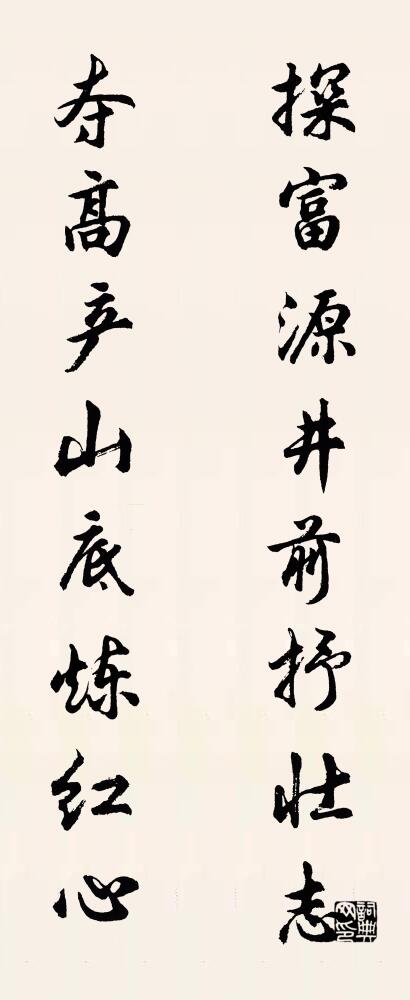 探富源井前抒壮志
夺高产山底炼红心
詞典网印